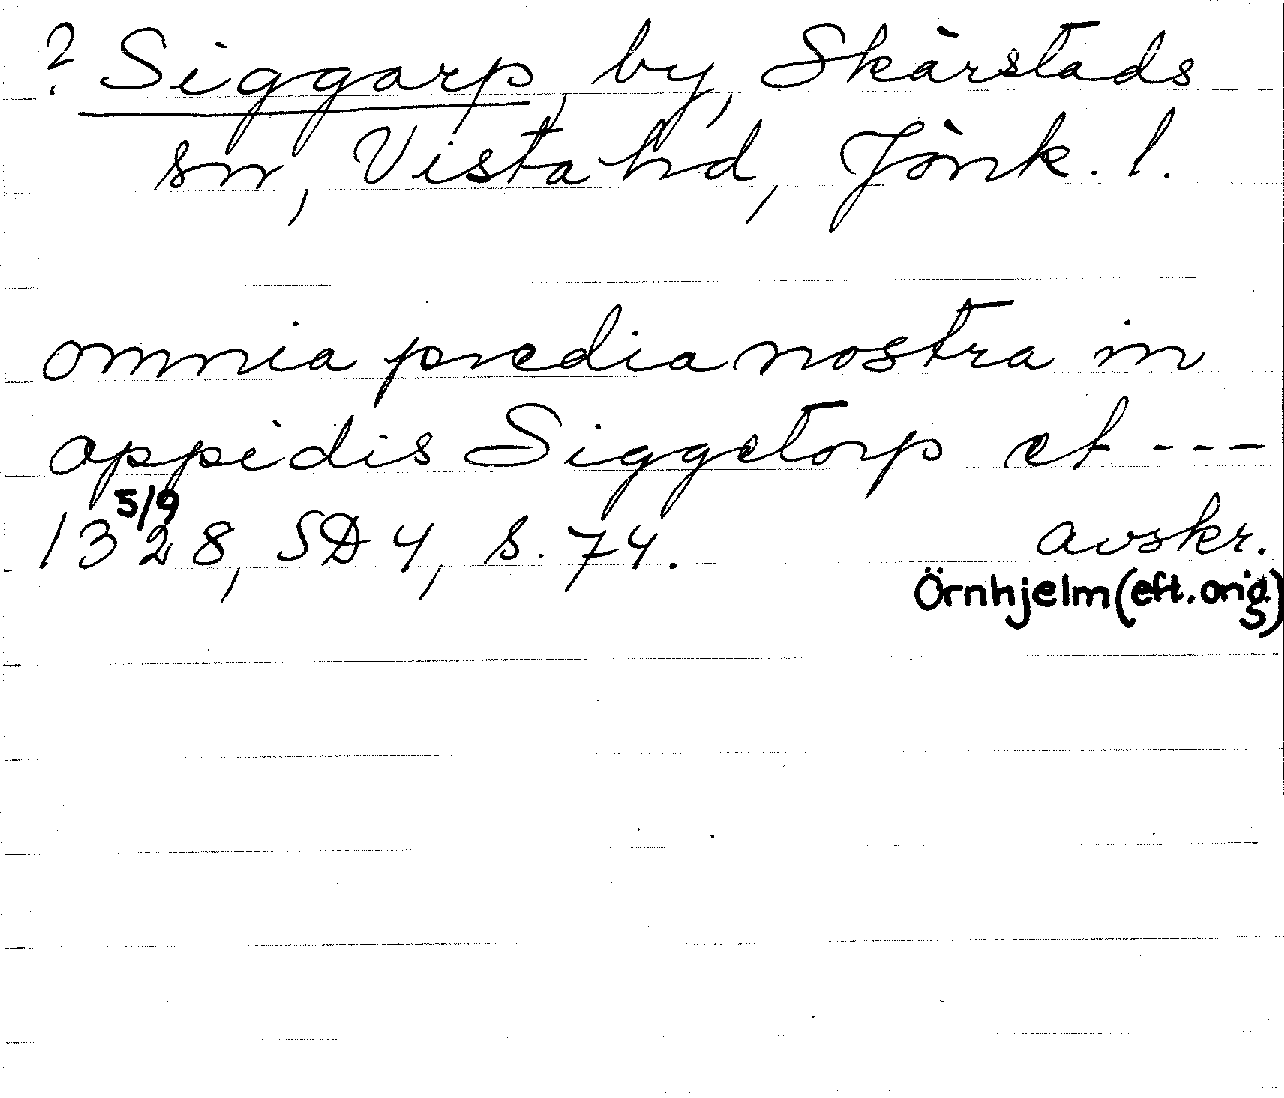 ? Siggarp, by, Skärstads
sn, Vista hd, Jönk. l.
omnia predia nostra in
oppidis Siggetorp et ---
1328, SD 4, s. 74. avskr.
5/9
Örnhjelm (eft. orig.)